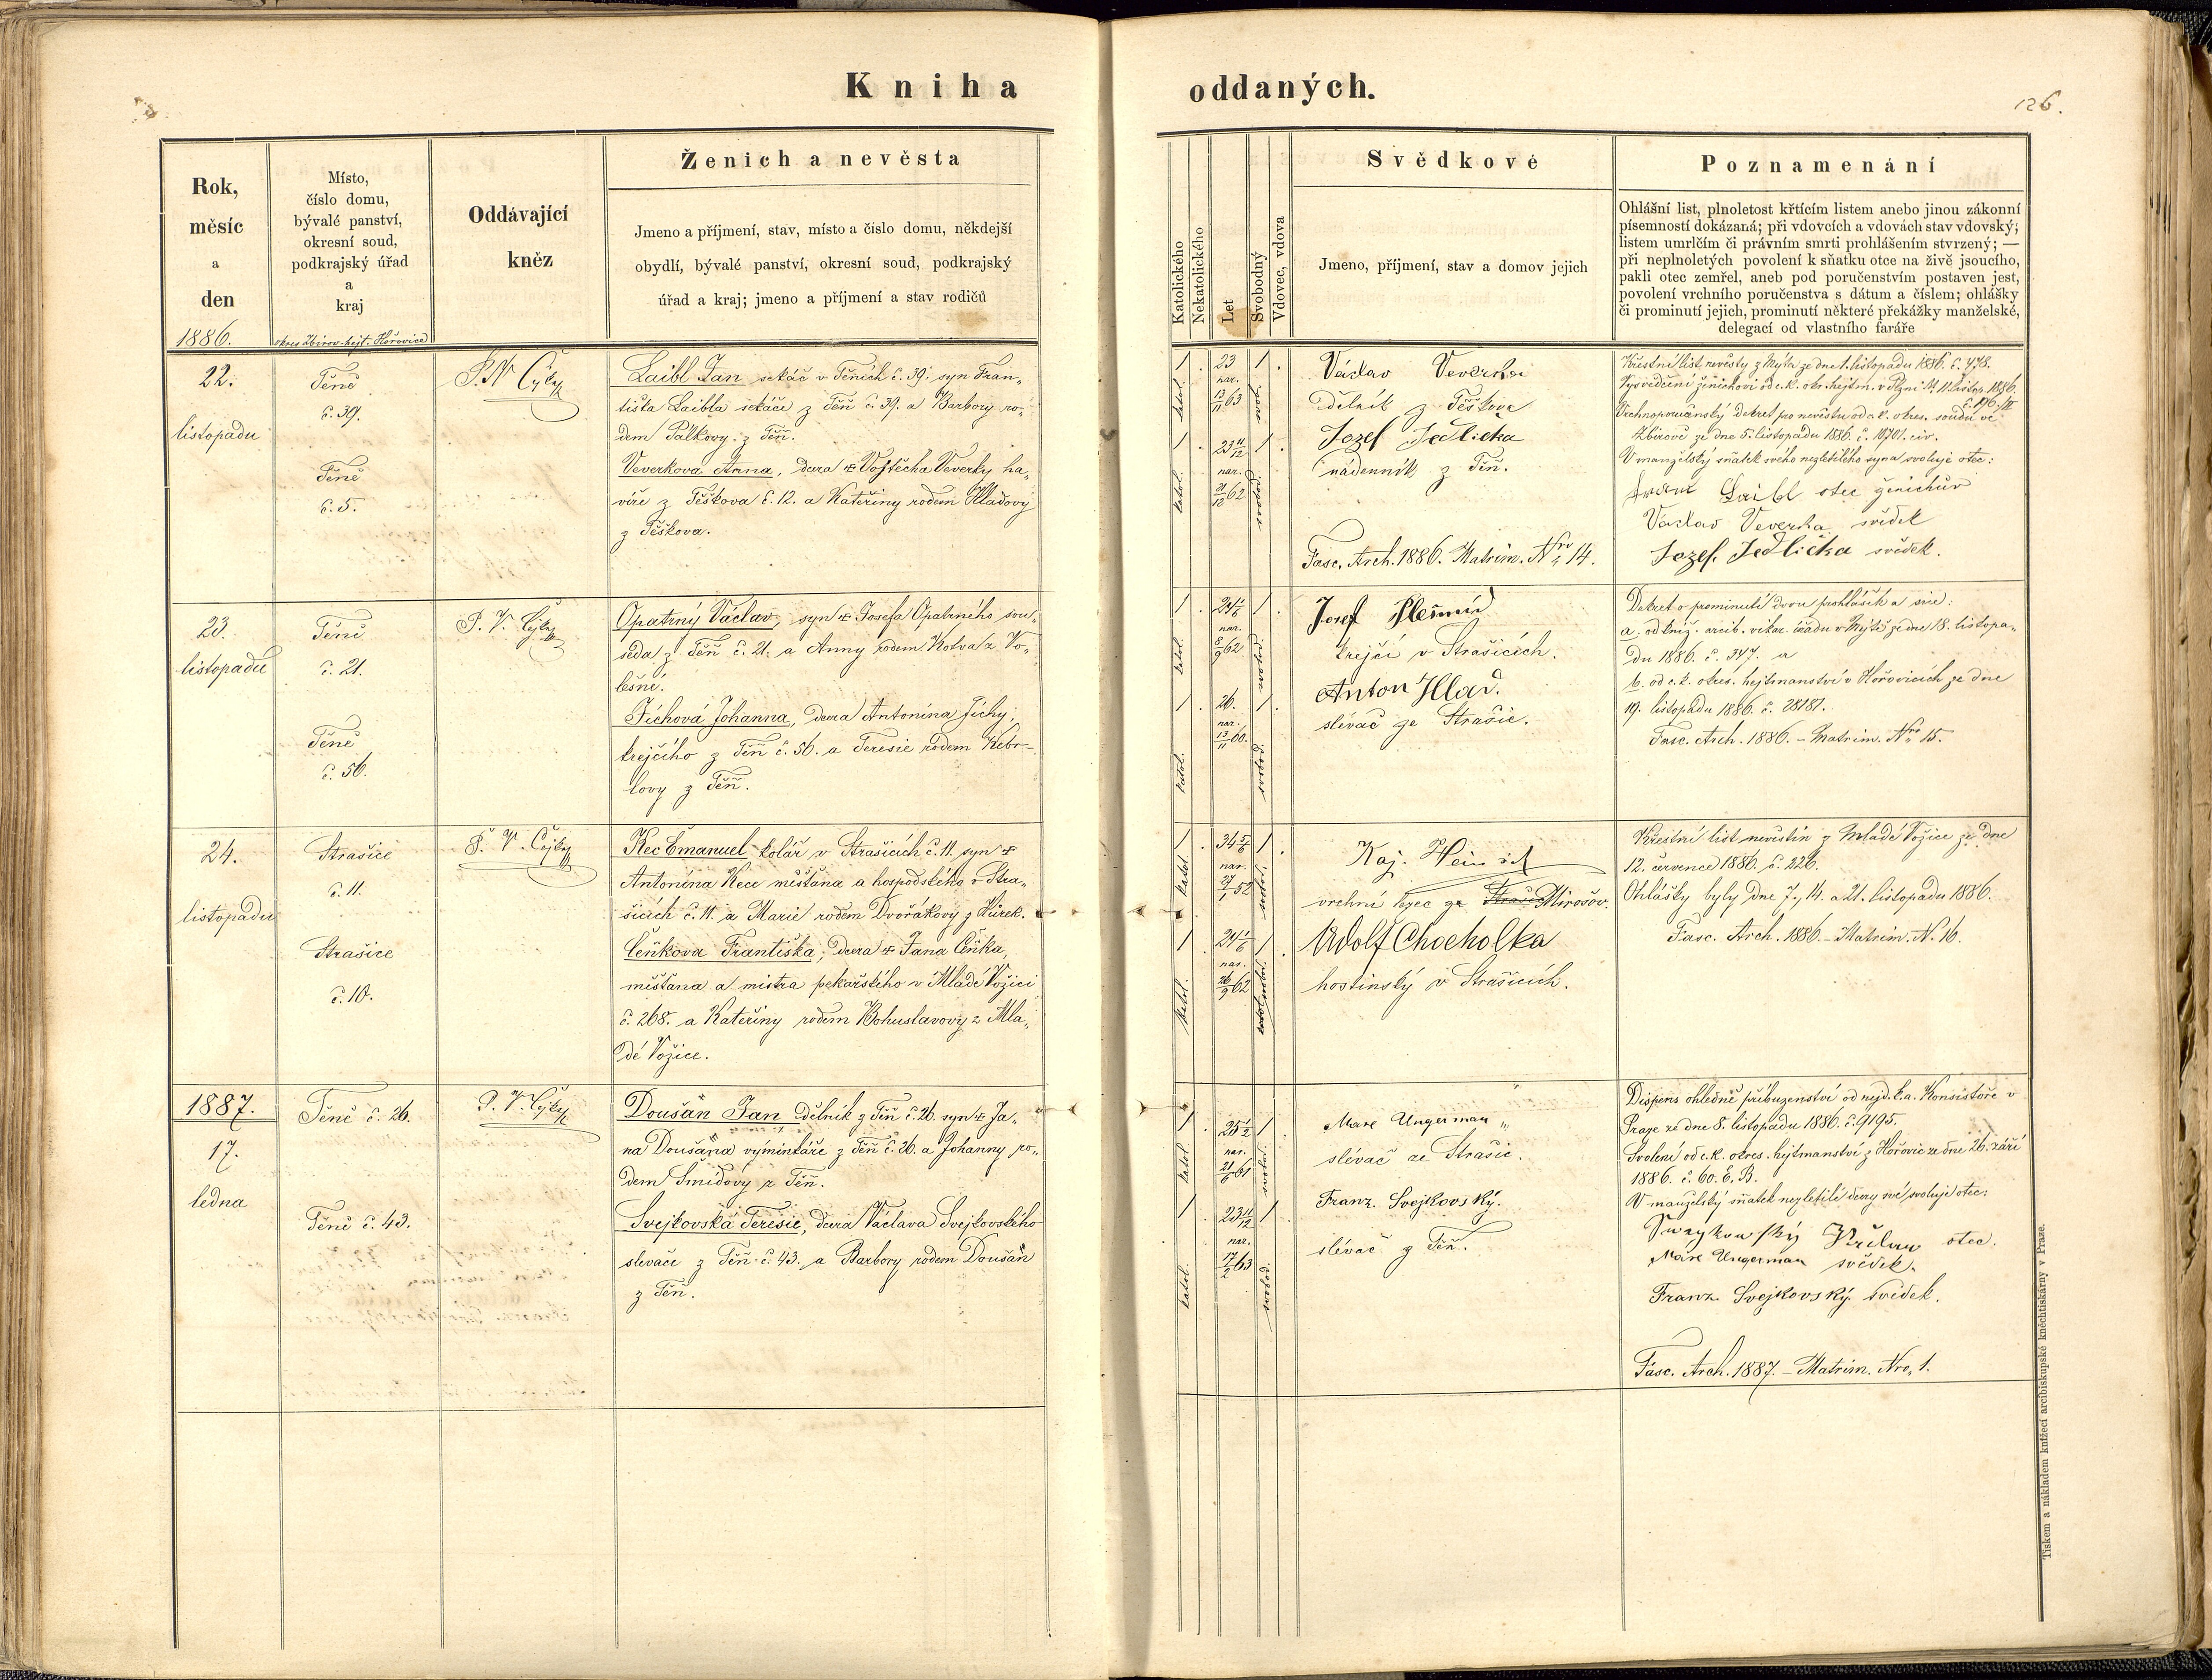 Kniha oddaných.
126.
Rok,
měsíc
a
den
1886.
Místo,
číslo domu,
bývalé panství,
okresní soud,
podkrajský úřad
a
kraj
okres Zbirov hejt. Hořovice
Oddávající
kněz
Ženich a nevěsta
Jmeno a příjmení, stav, místo a číslo domu, někdejší
obydlí, bývalé panství, okresní soud, podkrajský
úřad a kraj; jmeno a příjmení a stav rodičů
Katolického
Nekatolického
Let
Svobodný
Vdovec, vdova
Svědkové
Jmeno, příjmení, stav a domov jejich
Poznamenání
Ohlášní list, plnoletost křtícím listem anebo jinou zákonní
písemností dokázaná; při vdovcích a vdovách stav vdovský;
listem umrlčím či právním smrti prohlášením stvrzený; —
při neplnoletých povolení k sňatku otce na živě jsoucího,
pakli otec zemřel, aneb pod poručenstvím postaven jest,
povolení vrchního poručenstva s dátum a číslem; ohlášky
či prominutí jejich, prominutí některé překážky manželské,
delegací od vlastního faráře
22.
listopadu
Těně
č. 39.
Těně
č. 5.
Laibl Jan sekáč v Těních č. 39. syn Fran„
tiška Laibla sekáče z Těň č. 39. a Barbory ro„
dem Pálkovy z Těň.
Veverkova Anna, dcera Vojtěcha Veverky ha„
víře z Těškova č. 12. a Kateřiny rodem Hladovy
z Těškova.
1 23 1
katol. nar. 13/11 63 svob.
1 23 11/12 1
katol. nar. 21/12 62
Václav Veverka
dělník z Těškova
Jozef Jedlicka
nádenník z Těň.
Fasc. Arch. 1886. Matrim. Nro 14.
Křestní list nevěsty z Mýta ze dne 1. listopadu 1886. č. 478.
Vysvědčení ženichovi od c. k. okr. hejtm. v Plzni 11. listop. 1886.
Vrchnoporučenský dekret pro nevěstu od c. k. okres. soudu ve
Zbirově ze dne 5. listopadu 1886. č. 10701. civ.
V manželský sňatek svého nezletilého syna svoluje otec:
Laibl otec ženichův
Václav Veverka svědek
Jozef. Jedlička svědek.
23.
listopadu
Těně
č. 21.
Těně
č. 56.
Opatrný Václav, syn Josefa Opatrného sou„
seda z Těň č. 21. a Anny rodem Kotva z Vo„
lešné.
Jíchová Johanna, dcera Antonína Jíchy,
krejčího z Těň č. 56. a Teresie rodem Kebr„
lovy z Těň.
1 24 1
katol. nar. 8/9 62 svobod.
1 26. 1
katol. nar. 13/11 60. svobod.
Josef
krejčí v Strašicích.
Anton Hlad.
slévač ze Strašic.
Dekret o prominutí dvou prohlášek a sice:
a. od kníž. arcib. vikar. úřadu v Mýtě ze dne 18. listopa„
du 1886. č. 347. a
b. od c. k. okres. hejtmanství v Hořovicích ze dne
19. listopadu 1886. č. 28181.
Fasc. Arch. 1886. – Matrim. Nro 15.
24.
listopadu
Strašice
č. 11.
Strašice
č. 10.
Kec Emanuel kolář v Strašicích č. 11. syn
Antonína Kece měšťana a hospodského v Stra„
šicích č. 11. a Marie rodem Dvořákovy z Hůrek.
Čeňkova Františka, dcera Jana Čeňka,
měšťana a mistra pekařského v Mladé Vožici
č. 268. a Kateřiny rodem Bohuslavovy z Mla„
dé Vožice.
1 34 1
katol. nar. 52 svobod.
1 24 1
katol. nar. 26/9 62
Kaj.
vrchní ze Mirošov.
Adolf Chocholka
hostinský v Strašicích.
Křestní list nevěstin z Mladé Vožice ze dne
12. července 1886. č. 226.
Ohlášky byly dne 7., 14. a 21. listopadu 1886.
Fasc. Arch. 1886. – Matrim. N. 16.
1887.
17.
ledna
Těně č. 26.
Těně č. 43.
Doušan Jan dělník z Těň č. 26. syn Ja„
na Doušana výminkáře z Těň č. 26. a Johanny ro„
dem Šmídovy z Těň.
Svejkovská Teresie, dcera Václava Svejkovského
slevače z Těň č. 43. a Barbory rodem Doušan
z Těň.
1 25 1/2 1
katol. nar. 21/6 61 svobod.
1 23 11/12 1
katol. nar. 17/2 63 svobod.
Mare Ungerman
slévač ze Strašic.
Franz. Svejkovský.
slévač z Těň.
Dispens ohledně příbuzenství od nejd. k. a. Konsistoře v
Praze ze dne 8. listopadu 1886. č. 9195.
Svolení od c. k. okres. hejtmanství z Hořovic ze dne 26. září
1886. č. 60. E. B.
V manželský sňatek nezletilé dcery své svoluje otec:
otec.
Mare Ungerman svědek.
Franz. Svejkovský svědek.
Fasc. Arch. 1887. – Matrim. Nro, 1.
Tiskem a nákladem knížecí arcibiskupské knihtiskárny v Praze.